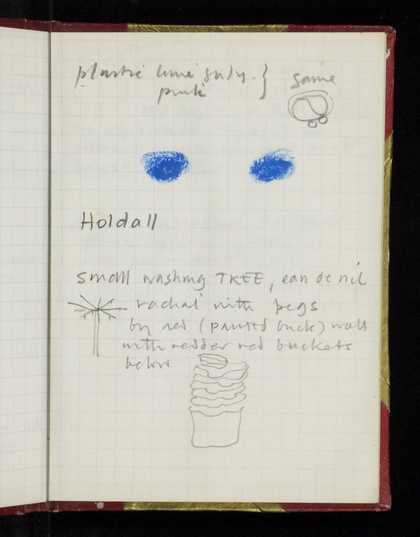 plastic lime
pink } same
Holdall
small washing TREE, eau de nil
radial with pegs
by red (painted brick) wall
with redder red buckets
below